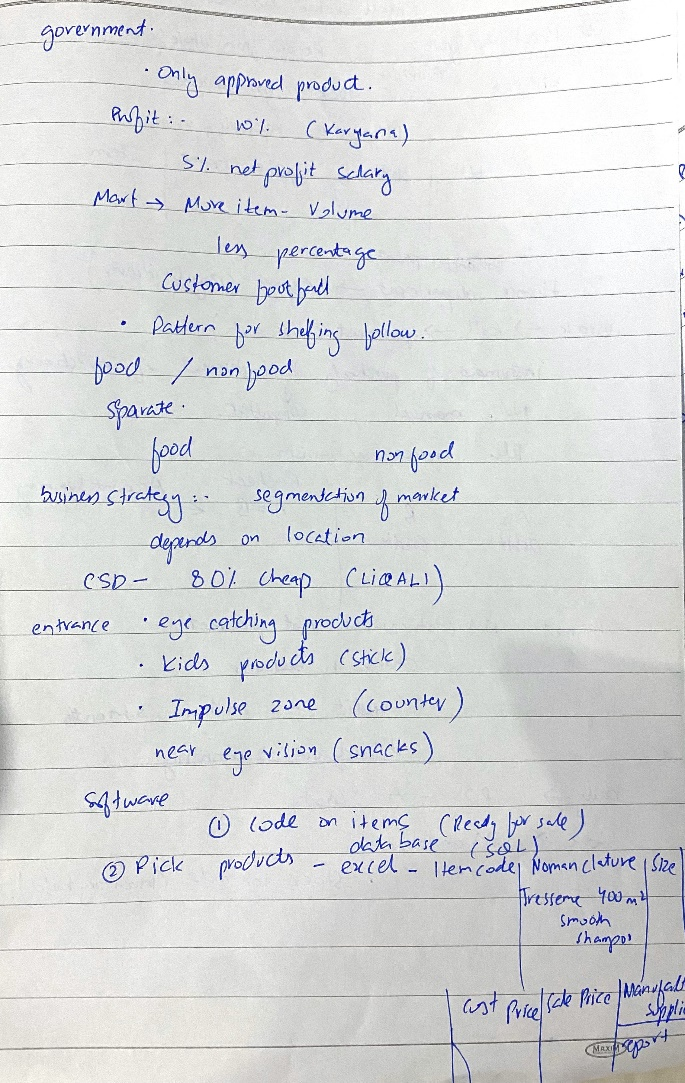 government.
· Only approved product.
Profit :- 10% (Karyana)
5% net profit salary
Mart → More item - Volume
less percentage
Customer footfall
· Pattern for shelfing follow.
food / non food
Sparate.
food non food
business strategy :- segmentation of market
depends on location
CSD - 80% Cheap
entrance · eye catching products
· Kids products (stick)
· Impulse zone (counter)
near eye vision (snacks)
Software
① Code on items (Ready for sale)
data base (SQL)
② Pick products - excel - Item code | Nomanclature | Size
Tresseme 400 ml
smooth
shampoo
Cost Price | Sale Price | Manufact
suppli
report
MAXIM